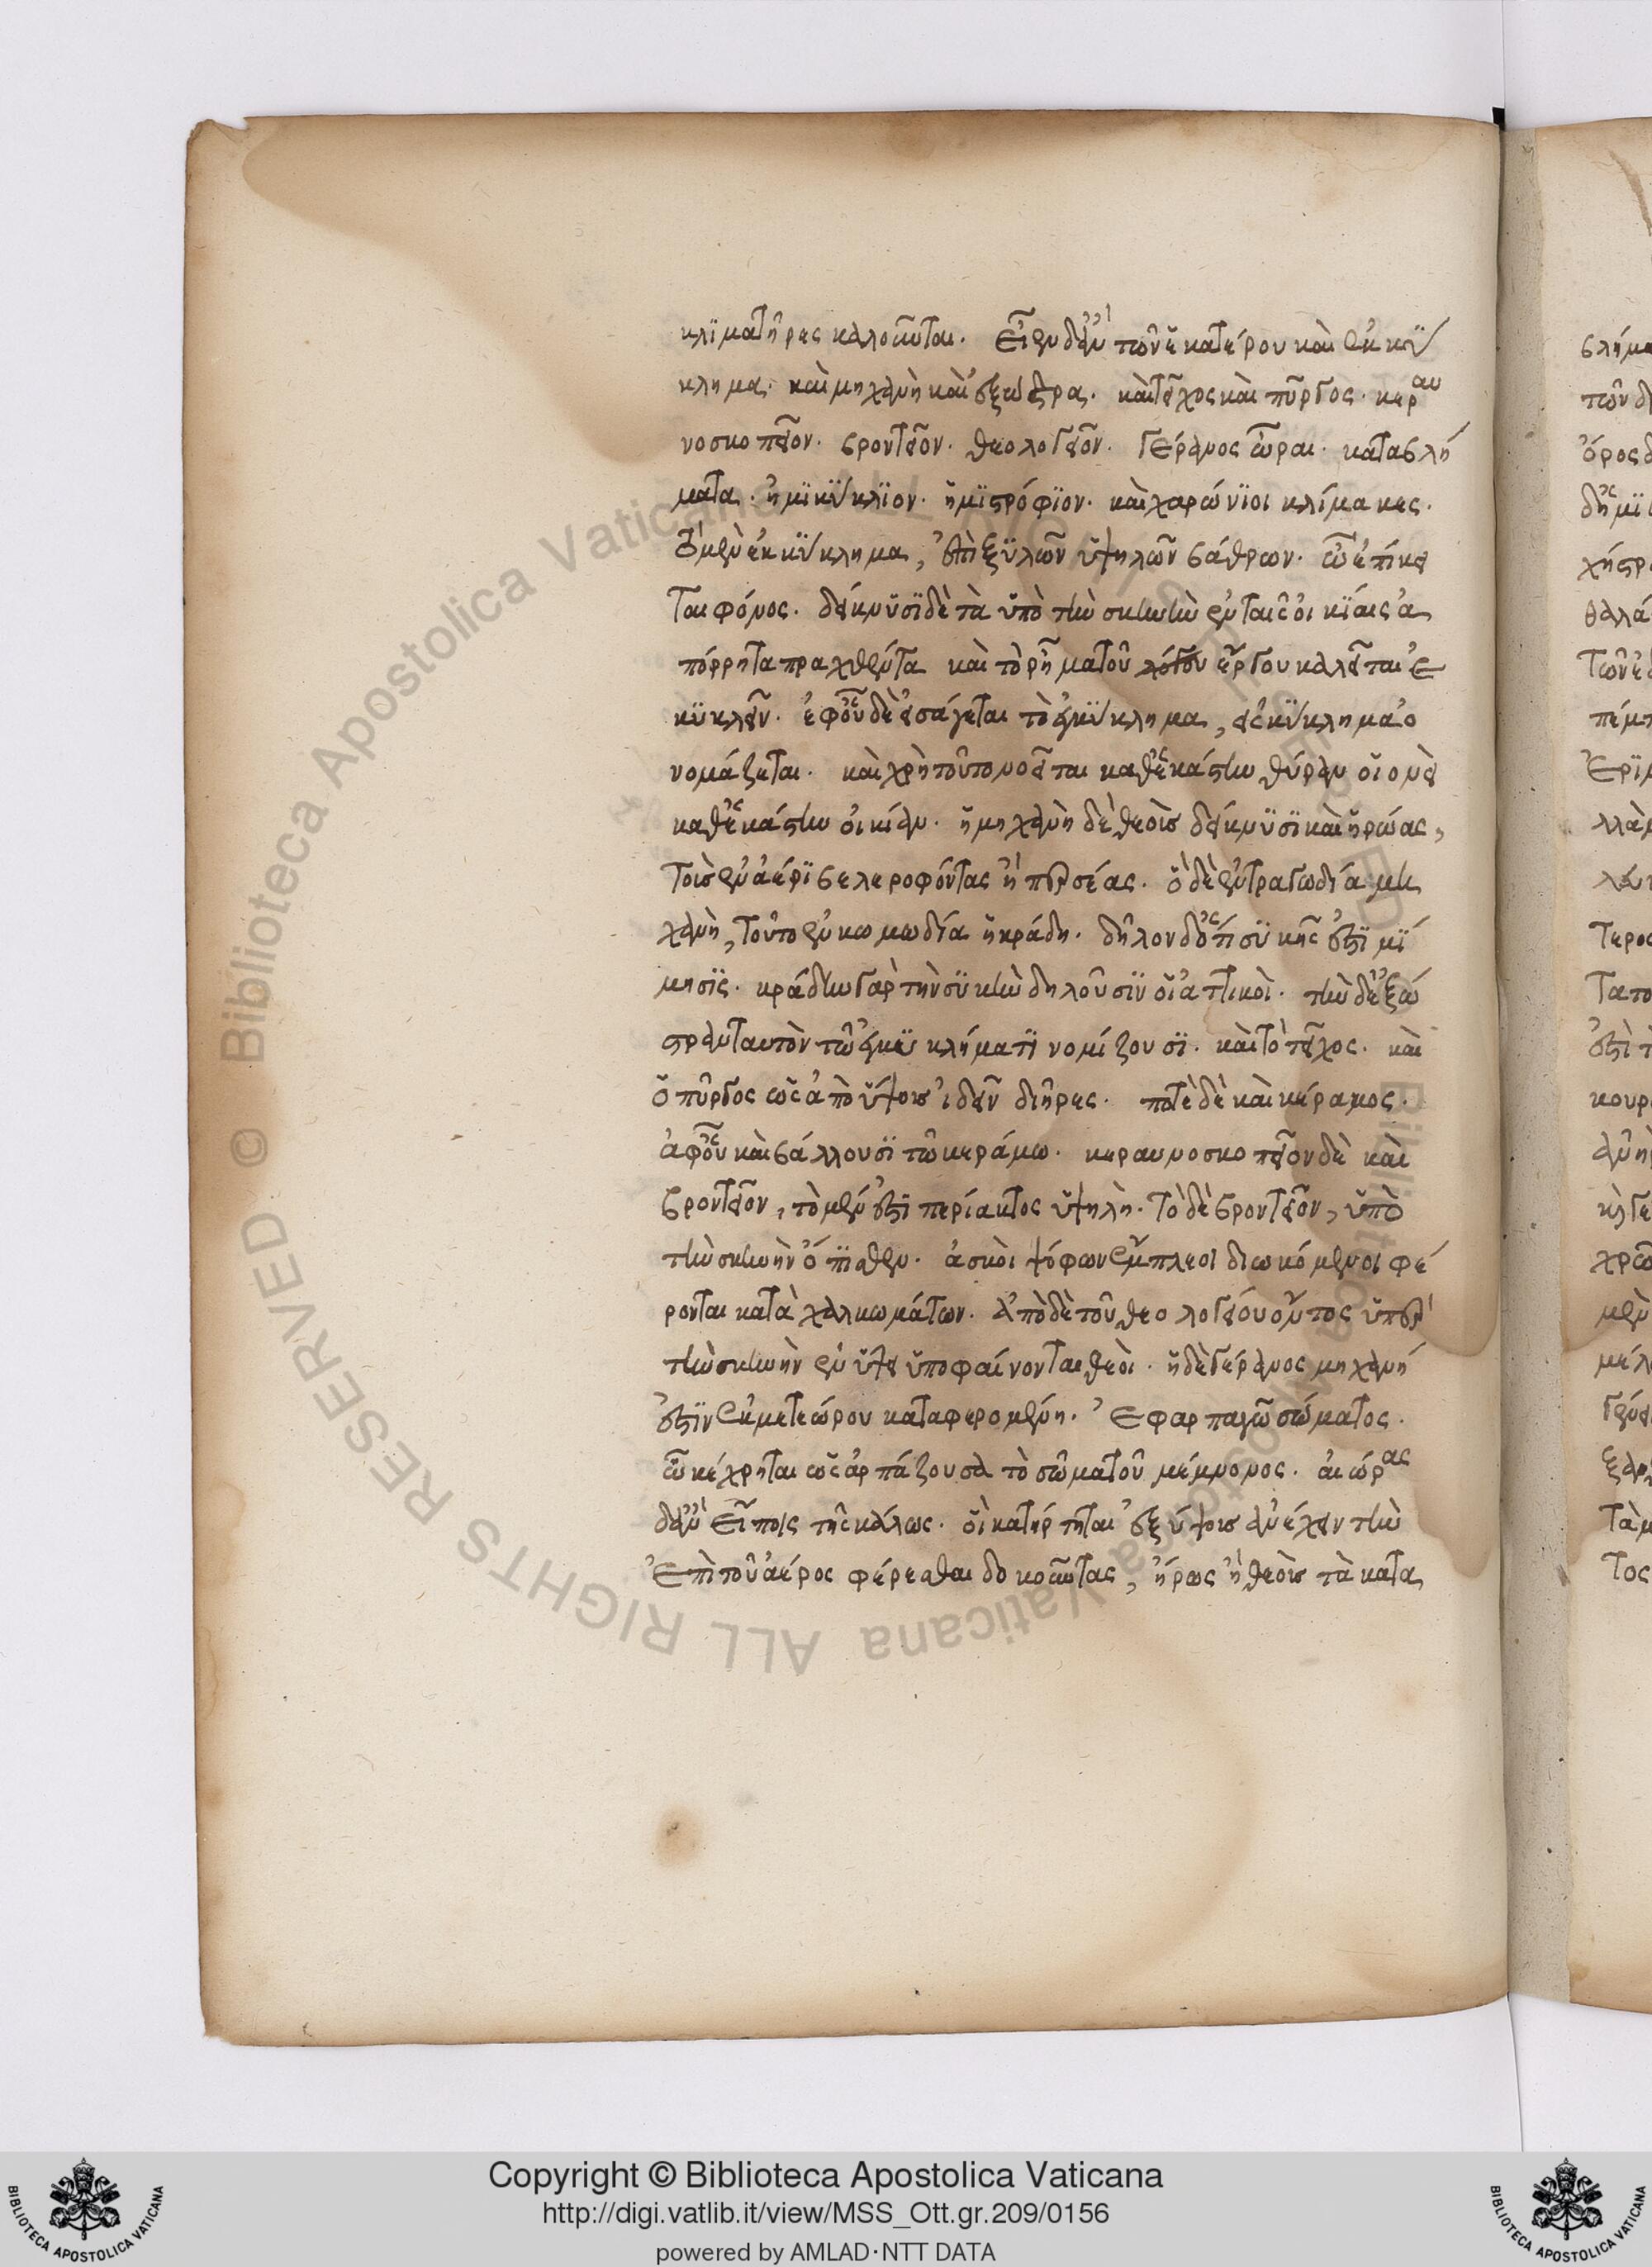 κλϊματῆρες καλοῦνται. εἴη δ' ἂν τῶν ἐκ θεάτρου καὶ ἐκκύ
κλημα. καὶ μηχανὴ καὶ ἐξώστρα. καὶ τεῖχος καὶ πύργος. κεραυ
νοσκοπεῖον. βροντεῖον. θεολογεῖον. γέρανος αἰῶραι. καταβλή
ματα. ἡμϊκύκλϊον. ἡμϊστρόφϊον. καὶ χαρώνϊοι κλίμακες.
τὸ μὲν ἐκκύκλημα, ἐπὶ ξύλων ὑψηλῶν βάθρων. ὧ ἐπίκει
ται φόνος. δείκνυσϊ δὲ τὰ ὑπὸ τὴν σκηνὴν ἐν ταῖς οἰκίαις ἀ
πόρρητα πραχθέντα καὶ τὸ ρῆμα τοῦ ἔργου καλεῖται ἐ
κυκλεῖν. ἐφ' οὗ δὲ εἰσάγεται τὸ ἐκκύκλημα, εἰσκύκλημα ὀ
νομάζεται. καὶ χρὴ τοῦτο νοεῖται καθ' ἑκάστην θύραν οἱονεὶ
καθ' ἑκάστην οἰκίαν. ἡ μηχανὴ δὲ θεοὺς δείκνυσϊ καὶ ἥρωας,
τοὺς ἐν ἀέρϊ βελεροφόντας ἢ περσέας. ὃ δὲ ἐν τραγωδία μη
χανὴ, τοῦτο ἐν κωμωδία ἡ κράδη. δῆλον δ' ὅτι συκῆς ἐστϊ μί
μησϊς. κράδην γὰρ τὴν συκὴν δηλοῦσϊν οἱ ἀττικοὶ. τὴν δ' ἐξώ
στραν ταυτὸν τῶ ἐκκυκλήματϊ νομίζουσϊ. καὶ τὸ τεῖχος. καὶ
ὁ πύργος ὡς ἀπὸ ὕψους ἰδεῖν διῆρες. ποτὲ δὲ καὶ κέραμος.
ἀφ' οὗ καὶ βάλλουσϊ τῶ κεράμω. κεραυνοσκοπεῖον δὲ καὶ
βροντεῖον, τὸ μέν ἐστϊ περίακτος ὑψηλὴ. τὸ δὲ βροντεῖον, ὑπὸ
τὴν σκηνὴν ὄπϊσθεν. ἀσκοὶ ψόφων ἔμπλεοι διωκόμενοι φέ
ρονται κατὰ χαλκωμάτων. ἀπὸ δὲ τοῦ θεολογείου ὄντος ὑπὲρ
τὴν σκηνὴν ἐν ὕψει ὑποφαίνονται θεοὶ. ἡ δὲ γέρανος μηχανή
ἐστϊν ἐκ μετεώρου καταφερομένη. ἐφ' ἁρπαγῶ σώματος.
ὧ κέχρηται ὡς ἁρπάζουσα τὸ σῶμα τοῦ μέμνονος. αἰώρας
δ' ἂν εἴποις τῆς κάλως. οἳ κατήρτηται ἐξ ὕψους ἀνέχειν τὴν
ἐπὶ τοῦ ἀέρος φέρεσθαι δοκοῦντας, ἥρως ἢ θεοὺς τὰ κατα
Copyright © Biblioteca Apostolica Vaticana
http://digi.vatlib.it/view/MSS_Ott.gr.209/0156
powered by AMLAD·NTT DATA